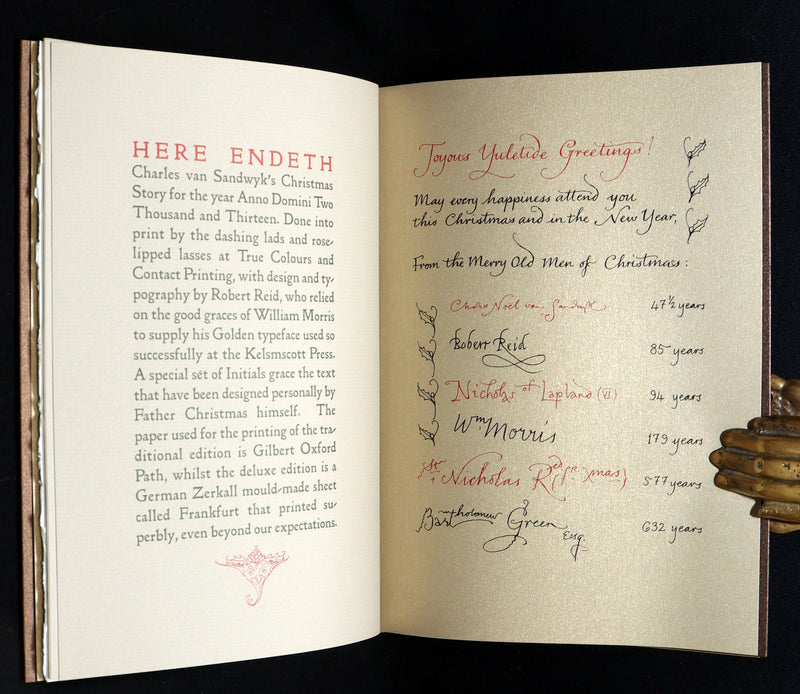 HERE ENDETH
Charles van Sandwyk's Christmas
Story for the year Anno Domini Two
Thousand and Thirteen. Done into
print by the dashing lads and rose-
lipped lasses at True Colours and
Contact Printing, with design and ty-
pography by Robert Reid, who relied
on the good graces of William Morris
to supply his Golden typeface used so
successfully at the Kelsmscott Press.
A special set of Initials grace the text
that have been designed personally by
Father Christmas himself. The
paper used for the printing of the tra-
ditional edition is Gilbert Oxford
Path, whilst the deluxe edition is a
German Zerkall mould-made sheet
called Frankfurt that printed su-
perbly, even beyond our expectations.
Joyous Yuletide Greetings!
May every happiness attend you
this Christmas and in the New Year,
From the Merry Old Men of Christmas:
Charles Noël van Sandwyk 47½ years
Robert Reid 85 years
Nicholas of Lapland (VI) 94 years
Wm Morris 179 years
St Nicholas 577 years
Bartholomew Green Esq. 632 years